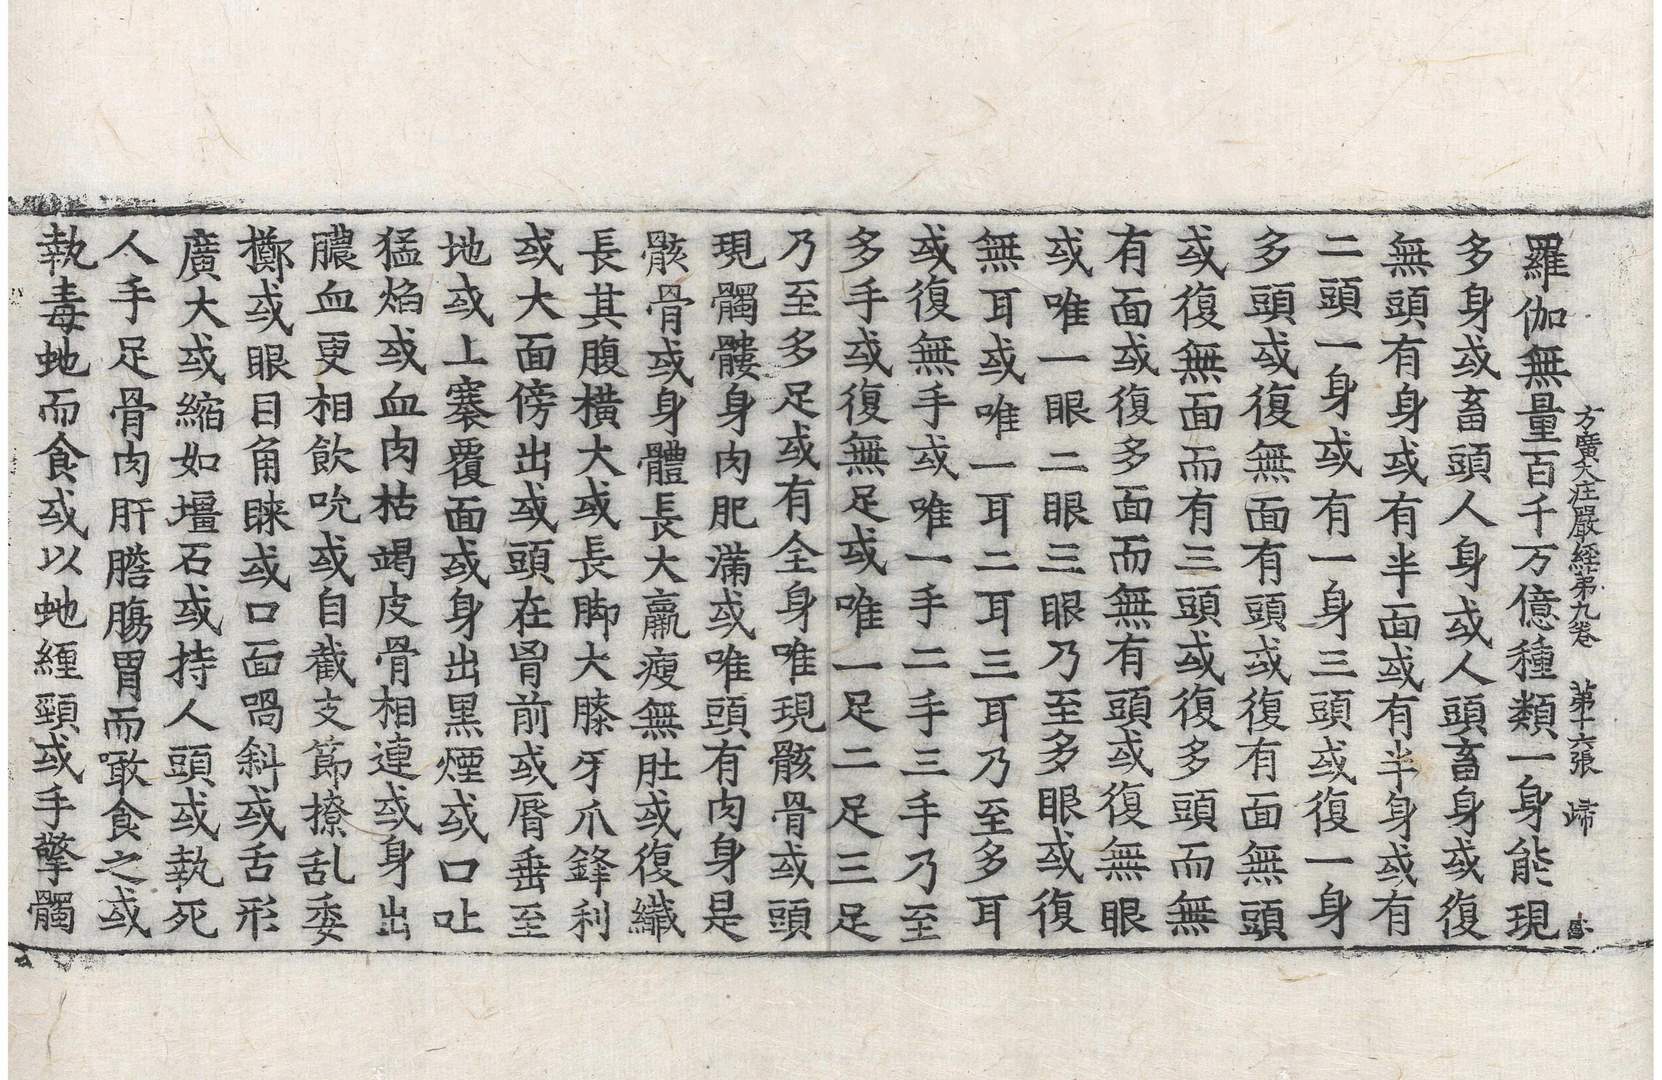 方廣大庄嚴經第九卷 第十六張 歸
羅伽無量百千万億種類一身能現
多身或畜頭人身或人頭畜身或復
無頭有身或有半面或有半身或有
二頭一身或有一身三頭或復一身
多頭或復無面有頭或復有面無頭
或復無面而有三頭或復多頭而無
有面或復多面而無有頭或復無眼
或唯一眼二眼三眼乃至多眼或復
無耳或唯一耳二耳三耳乃至多耳
或復無手或唯一手二手三手乃至
多手或復無足或唯一足二足三足
乃至多足或有全身唯現骸骨或頭
現髑髏身肉肥滿或唯頭有肉身是
骸骨或身體長大羸瘦無肚或復纖
長其腹橫大或長脚大膝牙爪鋒利
或大面傍出或頭在𦚾前或脣垂至
地或上褰覆面或身出黑煙或口吐
猛焰或血肉枯竭皮骨相連或身出
膿血更相飲吮或自截支節撩乱委
擲或眼目角睞或口面喎斜或舌形
廣大或縮如壃石或持人頭或執死
人手足骨肉肝膽腸胃而噉食之或
執毒虵而食或以虵經頸或手擎髑